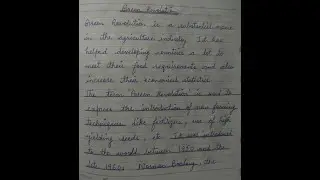 Green Revolution
Green Revolution is a substantial move
in the agriculture industry. It has
helped developing countries a lot to
meet their food requirements and also
increase their economical statistics.
The term 'Green Revolution' is used to
express the introduction of new farming
techniques like fertilizers, use of high
yielding seeds, etc. It was introduced
to the world between 1940 and the
late 1960s. Norman Borlaug, the